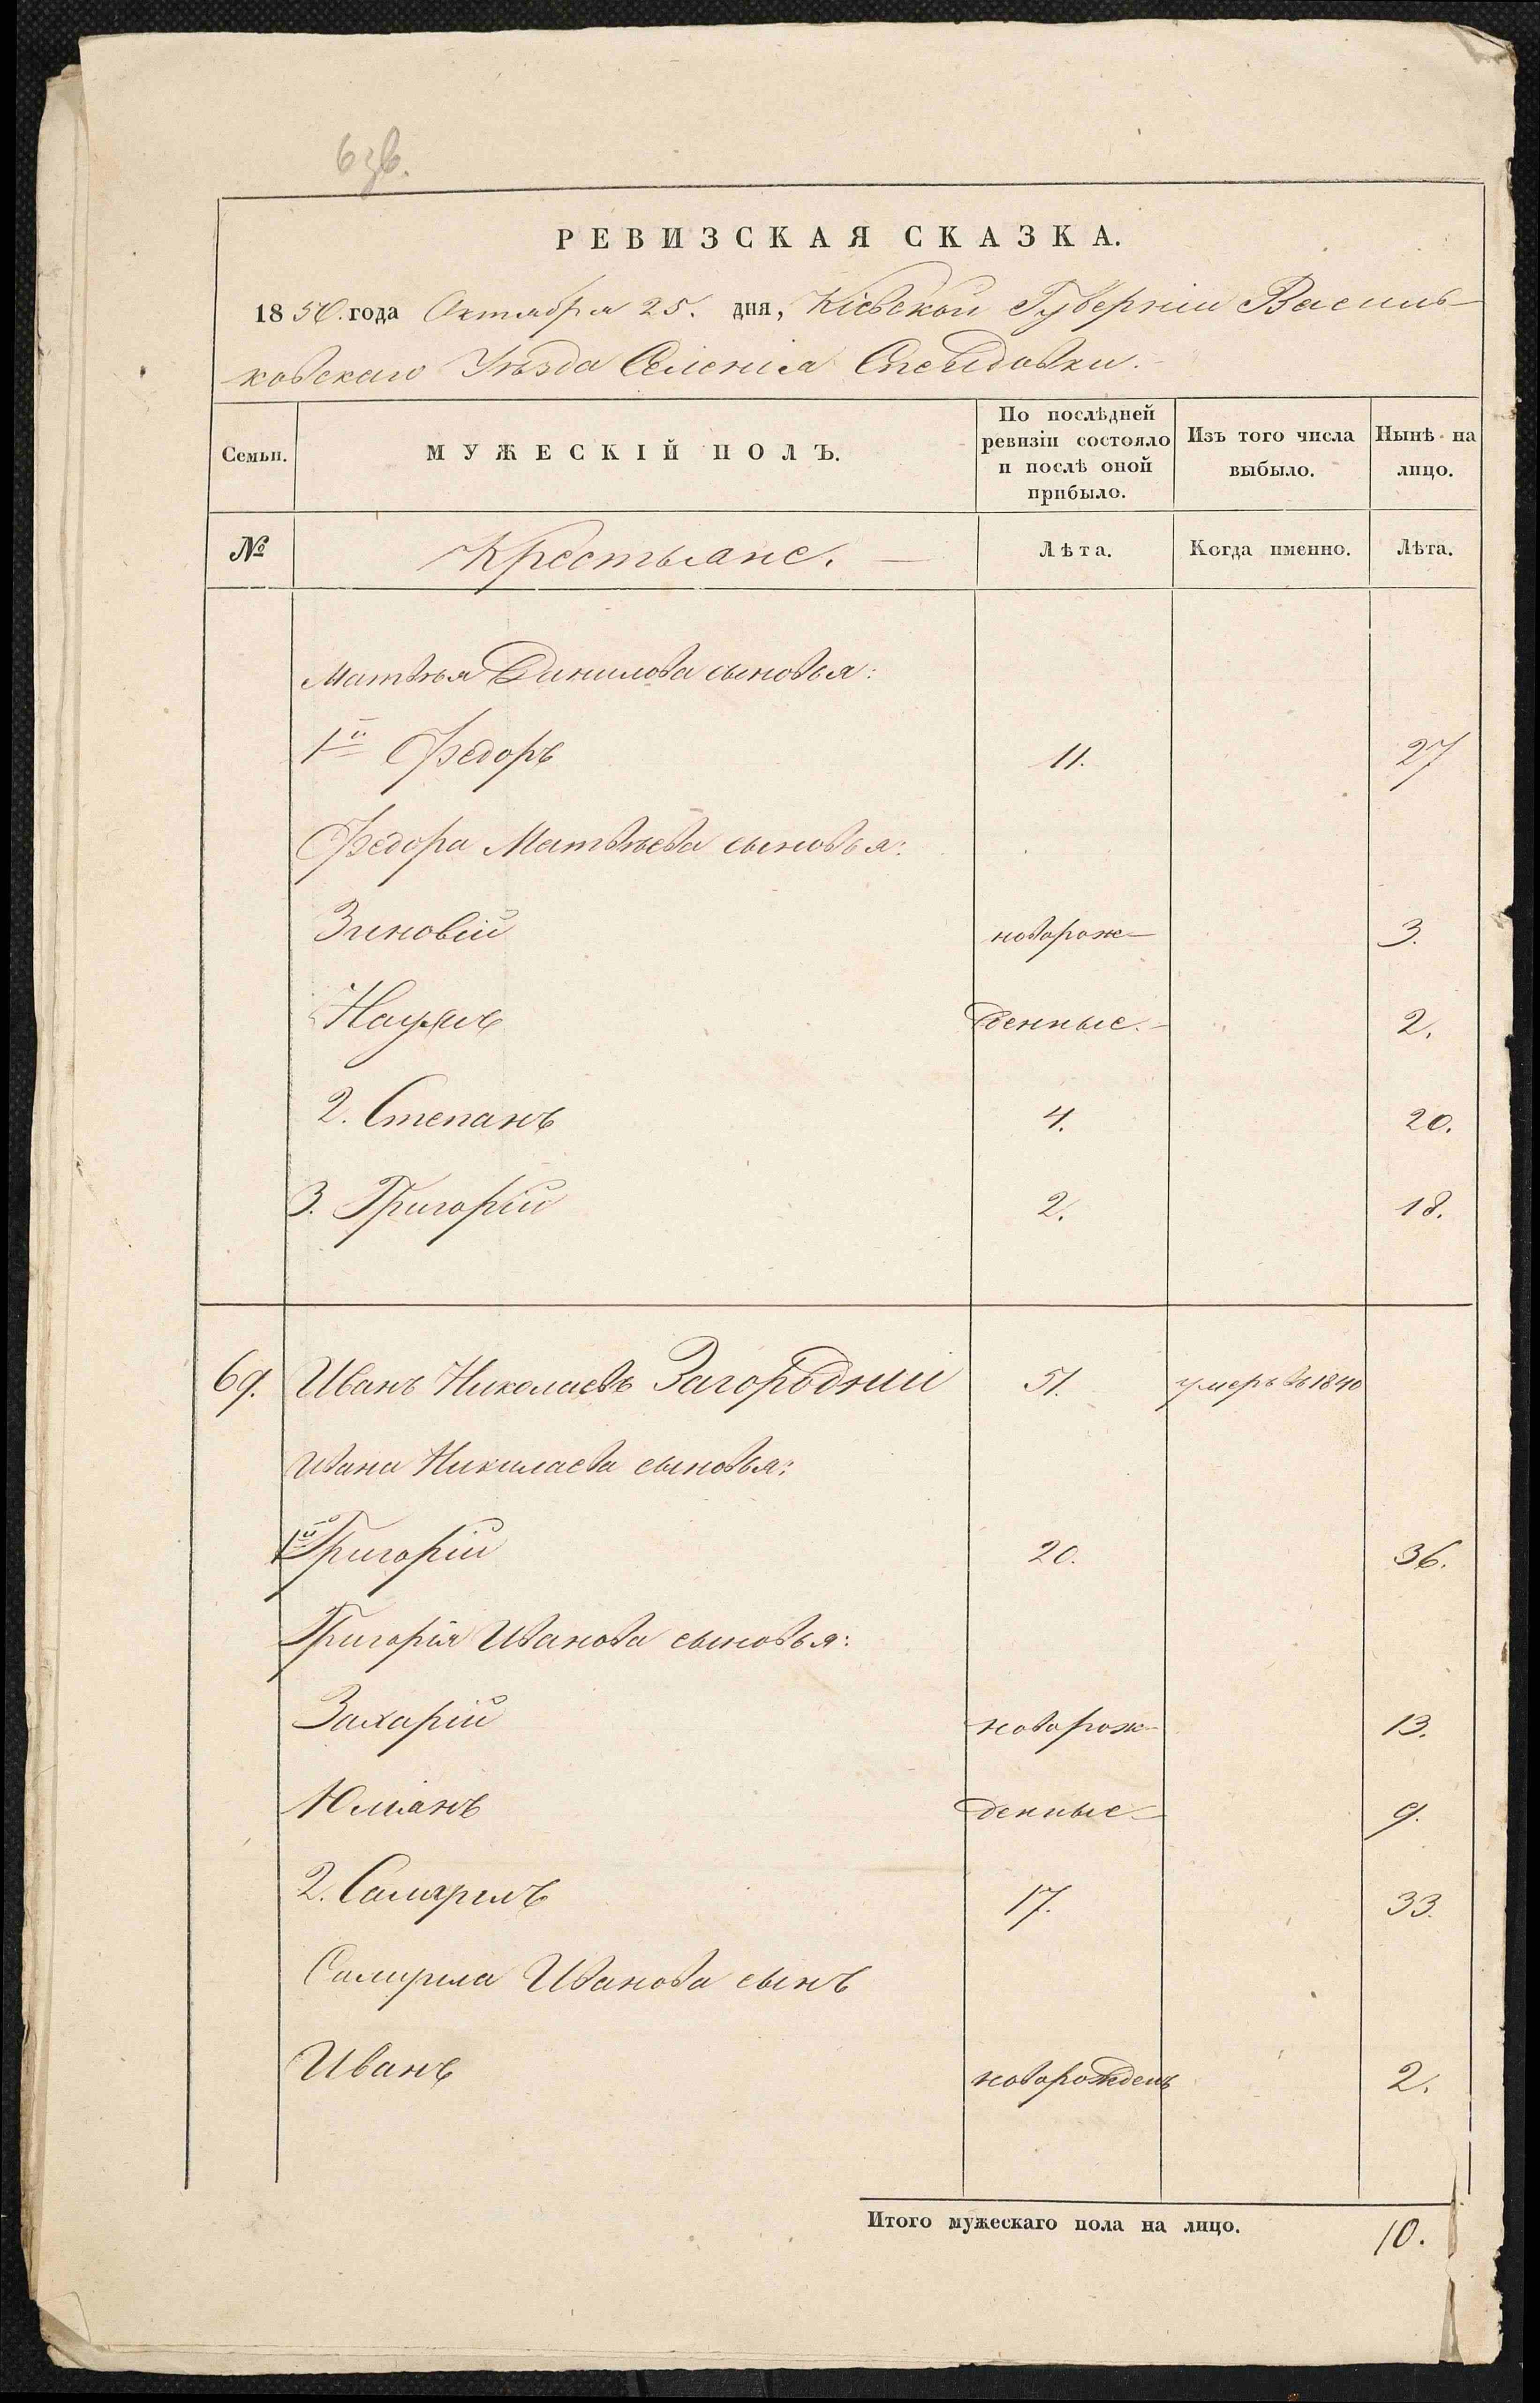 63б.
РЕВИЗСКАЯ СКАЗКА.
1850. года Октября 25. дня, Кіевской Губерніи Василь-
ковскаго Уѣзда Селенія
Семьи. МУЖЕСКІЙ ПОЛЪ. По послѣдней ревизіи состояло и послѣ оной прибыло. Изъ того числа выбыло. Нынѣ на лицо.
№ Крестьяне. — Лѣта. Когда именно. Лѣта.
Матвѣя Данилова сыновья:
1й Федоръ 11. 27
Федора Матвѣева сыновья:
Зиновій новорож- 3.
Наумъ денные. 2.
2. Степанъ 4. 20.
3. Григорій 2. 18.
69. Иванъ Николаевъ Загородній 51. умеръ въ 1840
Ивана Николаева сыновья:
1й Григорій 20. 36.
Григорія Иванова сыновья:
Захарій новорож- 13.
Юліанъ денные 9.
2. Самуилъ 17. 33.
Самуила Иванова сынъ
Иванъ новорожденъ 2.
Итого мужескаго пола на лицо. 10.